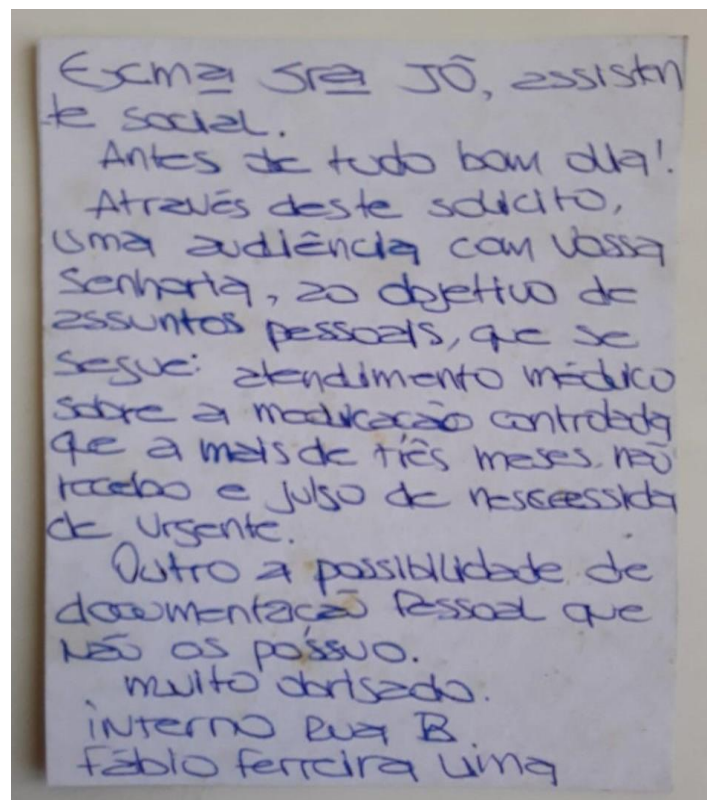 Excma Sra JÔ, assisten
te social.
Antes de tudo bom dia!
Através deste solicito,
uma audiência com vossa
senhoria, ao objetivo de
assuntos pessoais, que se
segue: atendimento médico
sobre a medicação controlada
que a mais de três meses não
recebo e julgo de nescessida
de urgente.
Outro a possibilidade de
documentação Pessoal que
não os possuo.
muito obrigado.
interno Rua B
Fábio Ferreira Lima